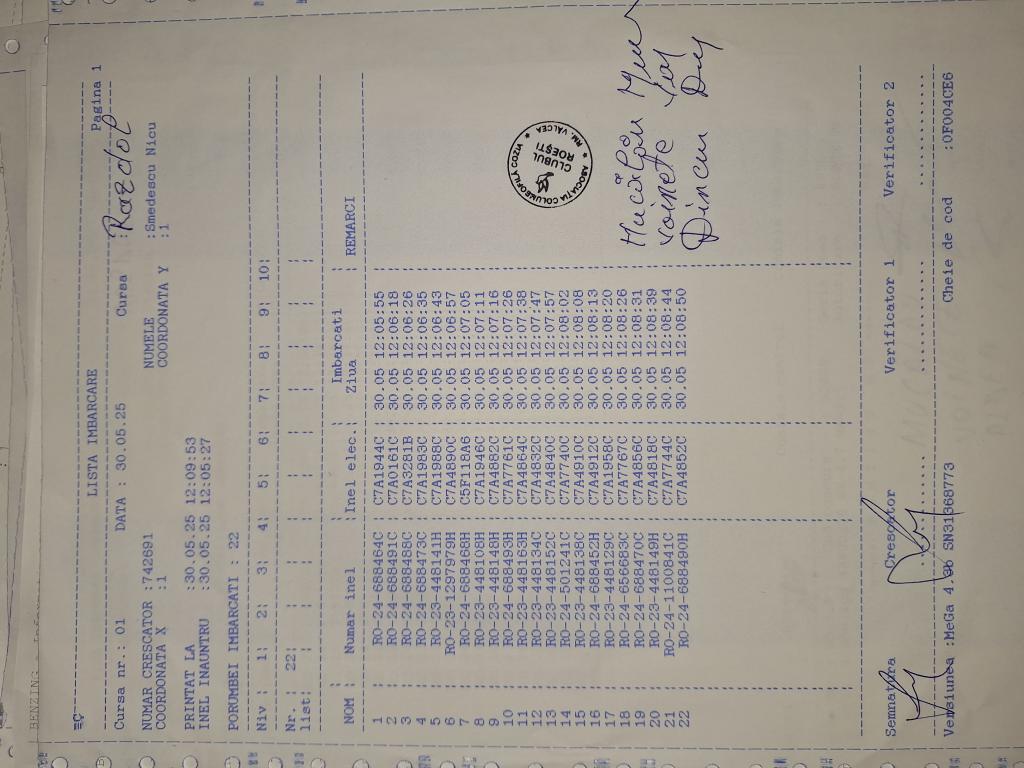 LISTA IMBARCARE
Pagina 1
Cursa nr.: 01 DATA : 30.05.25 Cursa :
NUMAR CRESCATOR :742691 NUMELE :Smedescu Nicu
COORDONATA X :1 COORDONATA Y :1
PRINTAT LA :30.05.25 12:09:53
INEL INAUNTRU :30.05.25 12:05:27
PORUMBEI IMBARCATI : 22
Niv : 1; 2; 3; 4; 5; 6; 7; 8; 9; 10;
Nr. : 22;
list:
Imbarcati
NOM ; Numar inel ;Inel elec.; Ziua ; REMARCI
1 ; RO-24-688464C ; C7A1944C ; 30.05 12:05:55 ;
2 ; RO-24-688491C ; C7A0161C ; 30.05 12:06:18 ;
3 ; RO-24-688488C ; C7A3281B ; 30.05 12:06:26 ;
4 ; RO-24-688473C ; C7A1963C ; 30.05 12:06:35 ;
5 ; RO-23-448141H ; C7A1988C ; 30.05 12:06:43 ;
6 ; RO-23-1297979H ; C7A4890C ; 30.05 12:06:57 ;
7 ; RO-24-688468H ; C5F118A6 ; 30.05 12:07:05 ;
8 ; RO-23-448108H ; C7A1946C ; 30.05 12:07:11 ;
9 ; RO-23-448148H ; C7A4882C ; 30.05 12:07:16 ;
10 ; RO-24-688493H ; C7A7761C ; 30.05 12:07:26 ;
11 ; RO-23-448163H ; C7A4864C ; 30.05 12:07:38 ;
12 ; RO-23-448134C ; C7A4832C ; 30.05 12:07:47 ;
13 ; RO-23-448152C ; C7A4840C ; 30.05 12:07:57 ;
14 ; RO-24-501241C ; C7A7740C ; 30.05 12:08:02 ;
15 ; RO-23-448138C ; C7A4910C ; 30.05 12:08:08 ;
16 ; RO-24-688452H ; C7A4912C ; 30.05 12:08:13 ;
17 ; RO-23-448129C ; C7A1958C ; 30.05 12:08:20 ;
18 ; RO-24-656683C ; C7A7767C ; 30.05 12:08:26 ;
19 ; RO-24-688470C ; C7A4856C ; 30.05 12:08:31 ;
20 ; RO-23-448149H ; C7A4818C ; 30.05 12:08:39 ;
21 ; RO-24-1100841C ; C7A7744C ; 30.05 12:08:44 ;
22 ; RO-24-688490H ; C7A4852C ; 30.05 12:08:50 ;
ASOCIATIA COLUMBOFILA COZIA
RM. VALCEA
CLUBUL
ROEȘTI
Dincu
Semnatura Crescator Verificator 1 Verificator 2
Versiunea :MeGa 4.0b SN31368773 Cheie de cod :0F004CE6